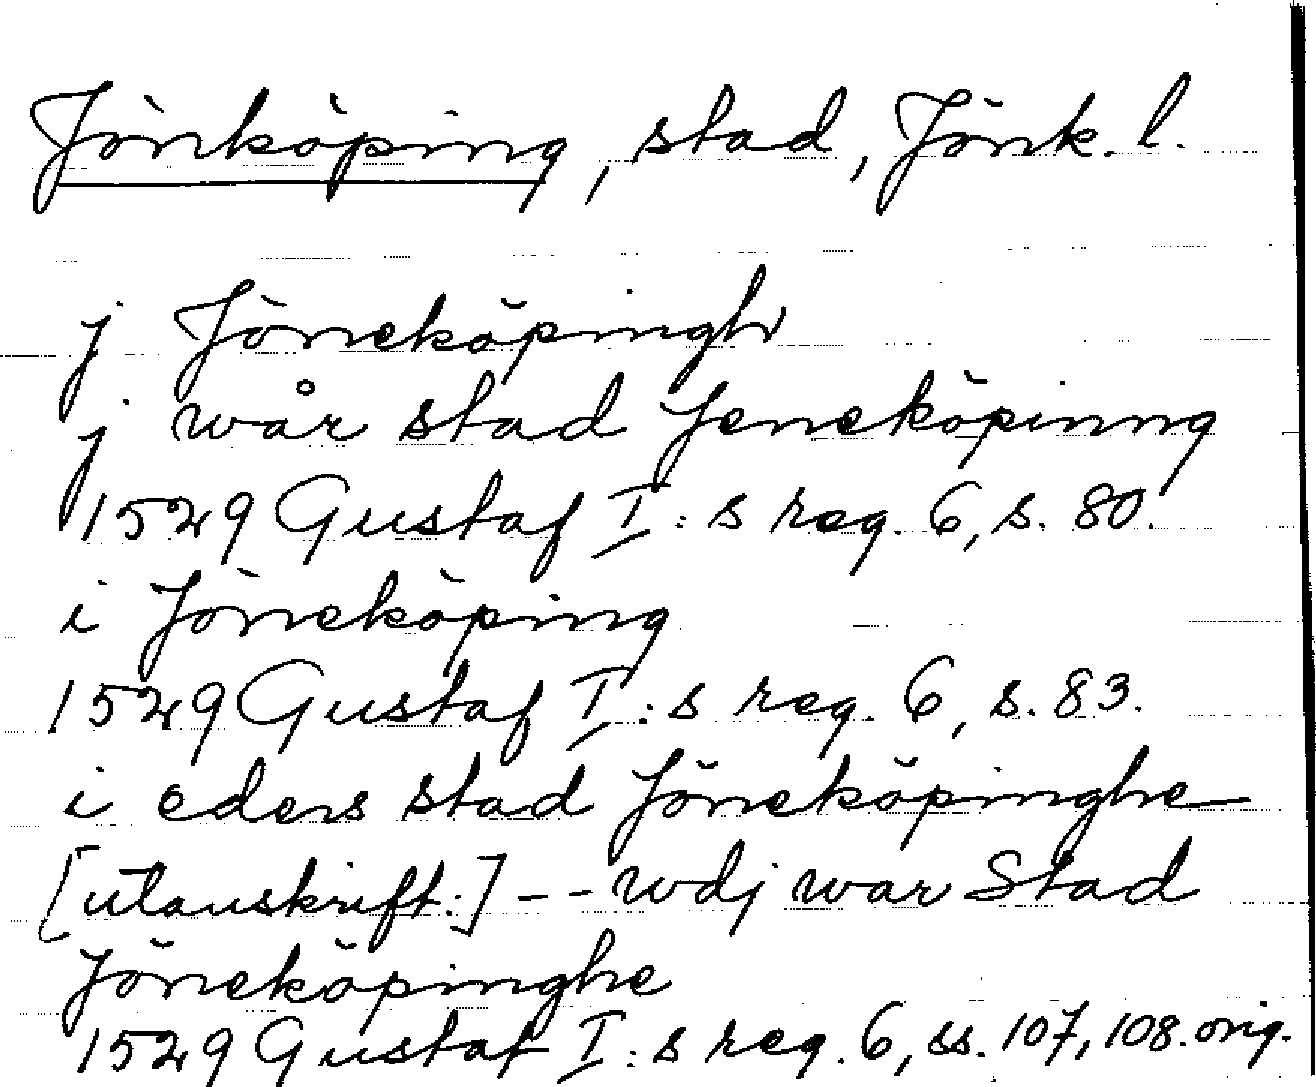 Jönköping, stad, Jönk. l.
j Jöneköpingh
j wår stad Jeneköpinng
1529 Gustaf I:s reg. 6, s. 80.
i Jöneköping
1529 Gustaf I:s reg. 6, s. 83.
i eders stad Jöneköpinghe
[utanskrift:] -- wdj war Stad
Jöneköpinghe
1529 Gustaf I:s reg. 6, ss. 107, 108. orig.